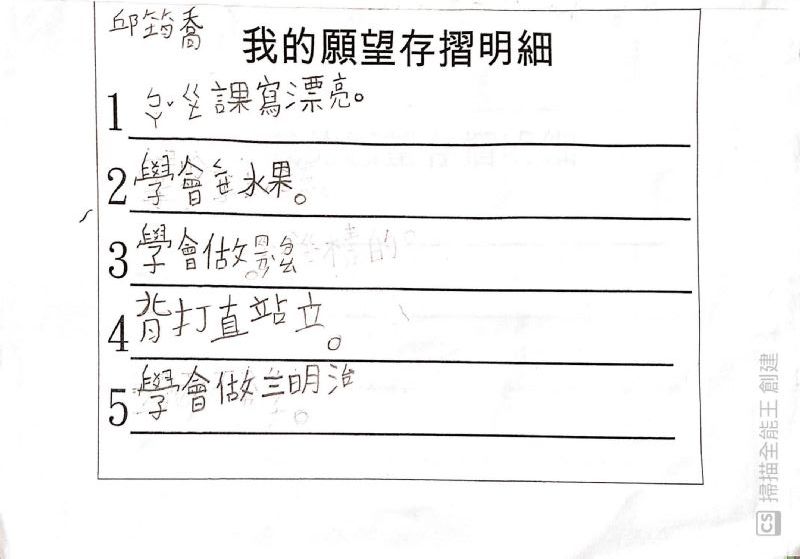 邱筠喬
我的願望存摺明細
1 ㄅㄚˇ 課寫漂亮。
2 學會 水果。
3 學會做
4 背打直站立。
5 學會做三明治。
CS 掃描全能王 創建